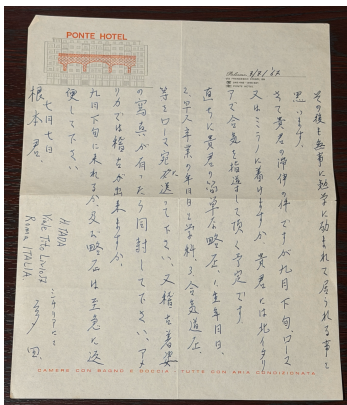 PONTE HOTEL
その後も無事に勉学に励まれて居られる事と
思います。
さて貴君の滞伊の件ですが九月下旬、ローマ
又はミラノに着けますか、貴君には北イタリ
アで合気を指導して頂く予定です。
直ちに貴君の簡単な略歴、1. 生年月日、
2. 早大卒業の年月日と学科、3. 合気道歴、
等をローマ宛に送って下さい、又稽古着姿
の写真が有ったら同封して下さい、アメ
リカでは稽古が出来ますか、
九月下旬に来れるか及び略歴は至急に返
便して下さい
七月七日
根本君
H. TADA
Viale Tito Livio
Roma ITALIA
多田
CAMERE CON BAGNO E DOCCIA - TUTTE CON ARIA CONDIZIONATA